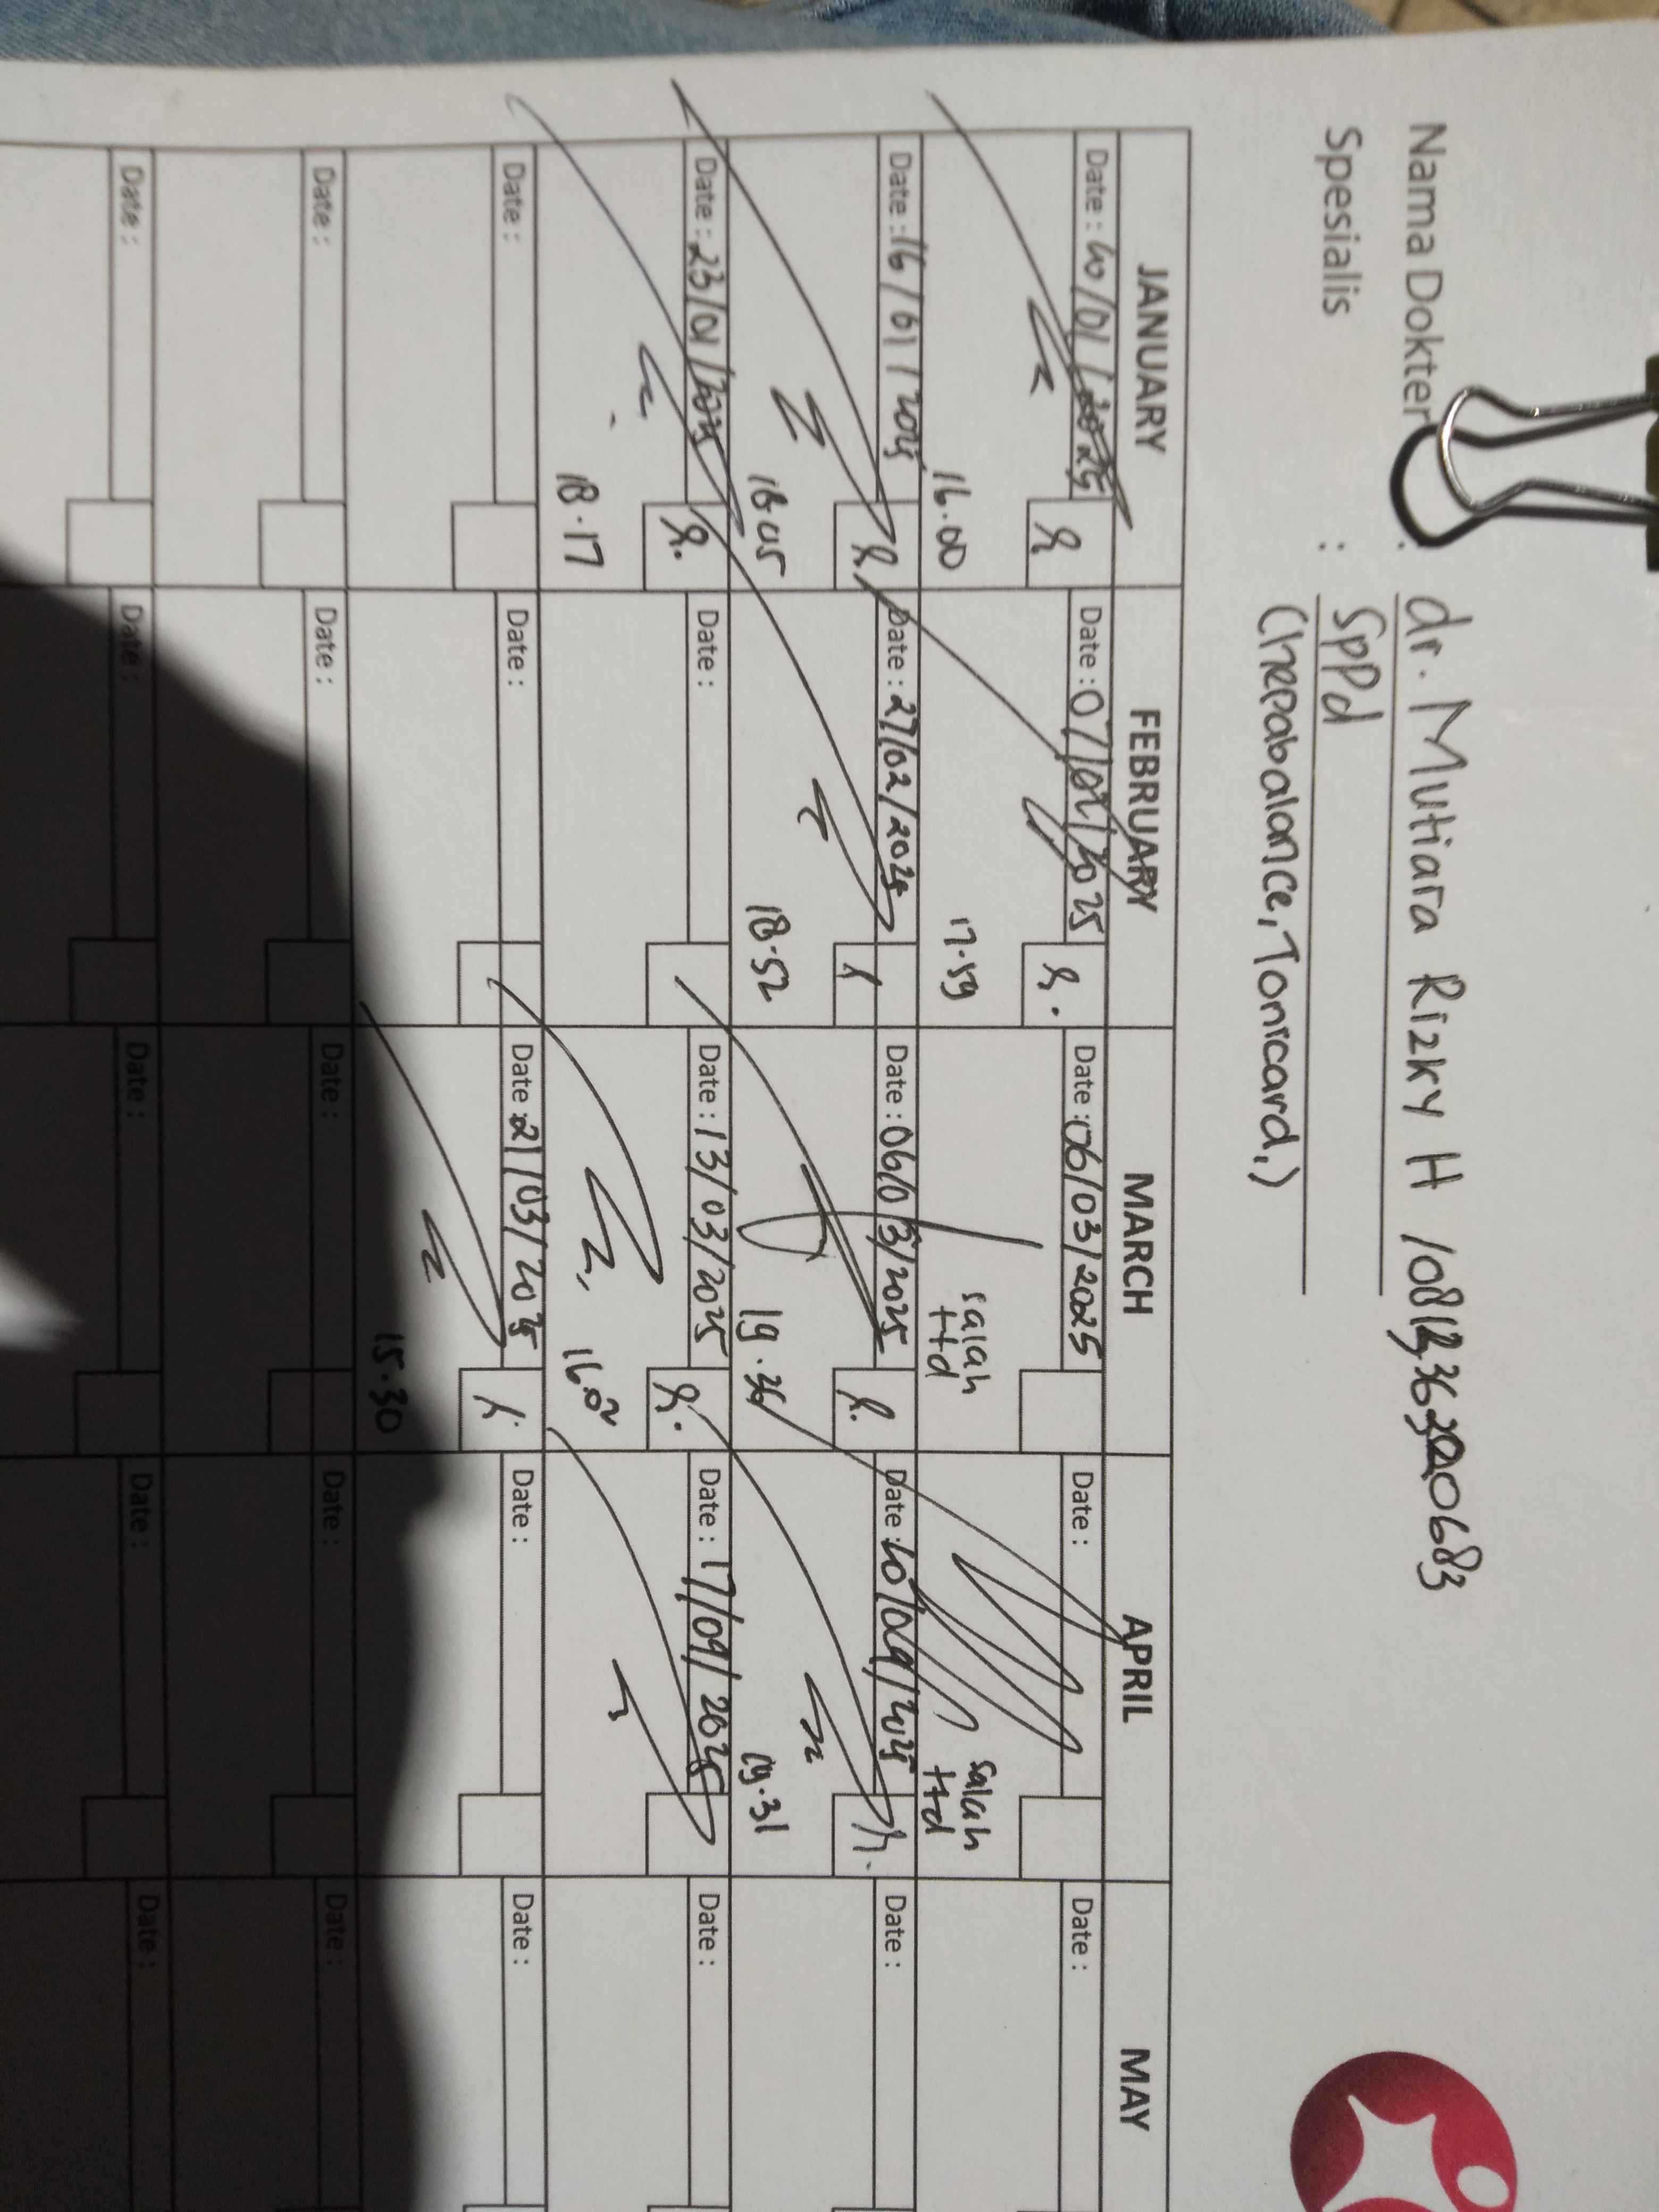 Nama Dokter : dr. Mutiara Rizky H
Spesialis : SpPd
(Hepabalance, Tonicard,)
JANUARY FEBRUARY MARCH APRIL MAY
Date : 10/01/2025 Date : 07/02/2025 Date : 06/03/2025 Date : Date :
16.00 17.59 salah ttd salah ttd
Date : 16/01/2025 Date : 27/02/2025 Date : 06/03/2025 Date : 10/04/2025 Date :
18.05 18.52 19.36 19.31
Date : 23/01/2025 Date : Date : 13/03/2025 Date : 17/04/2025 Date :
18.17 16.02
Date : Date : Date : 21/03/2025 Date : Date :
15.30
Date : Date : Date : Date : Date :
Date : Date : Date : Date : Date :